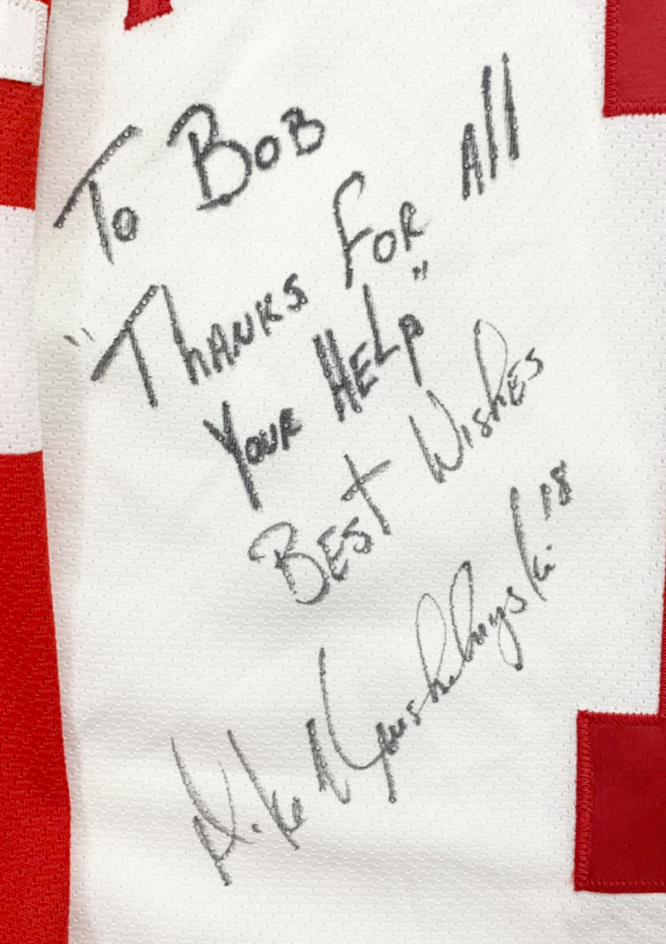 To Bob
"Thanks For All
Your Help"
Best Wishes
Mike Krushelnyski 18